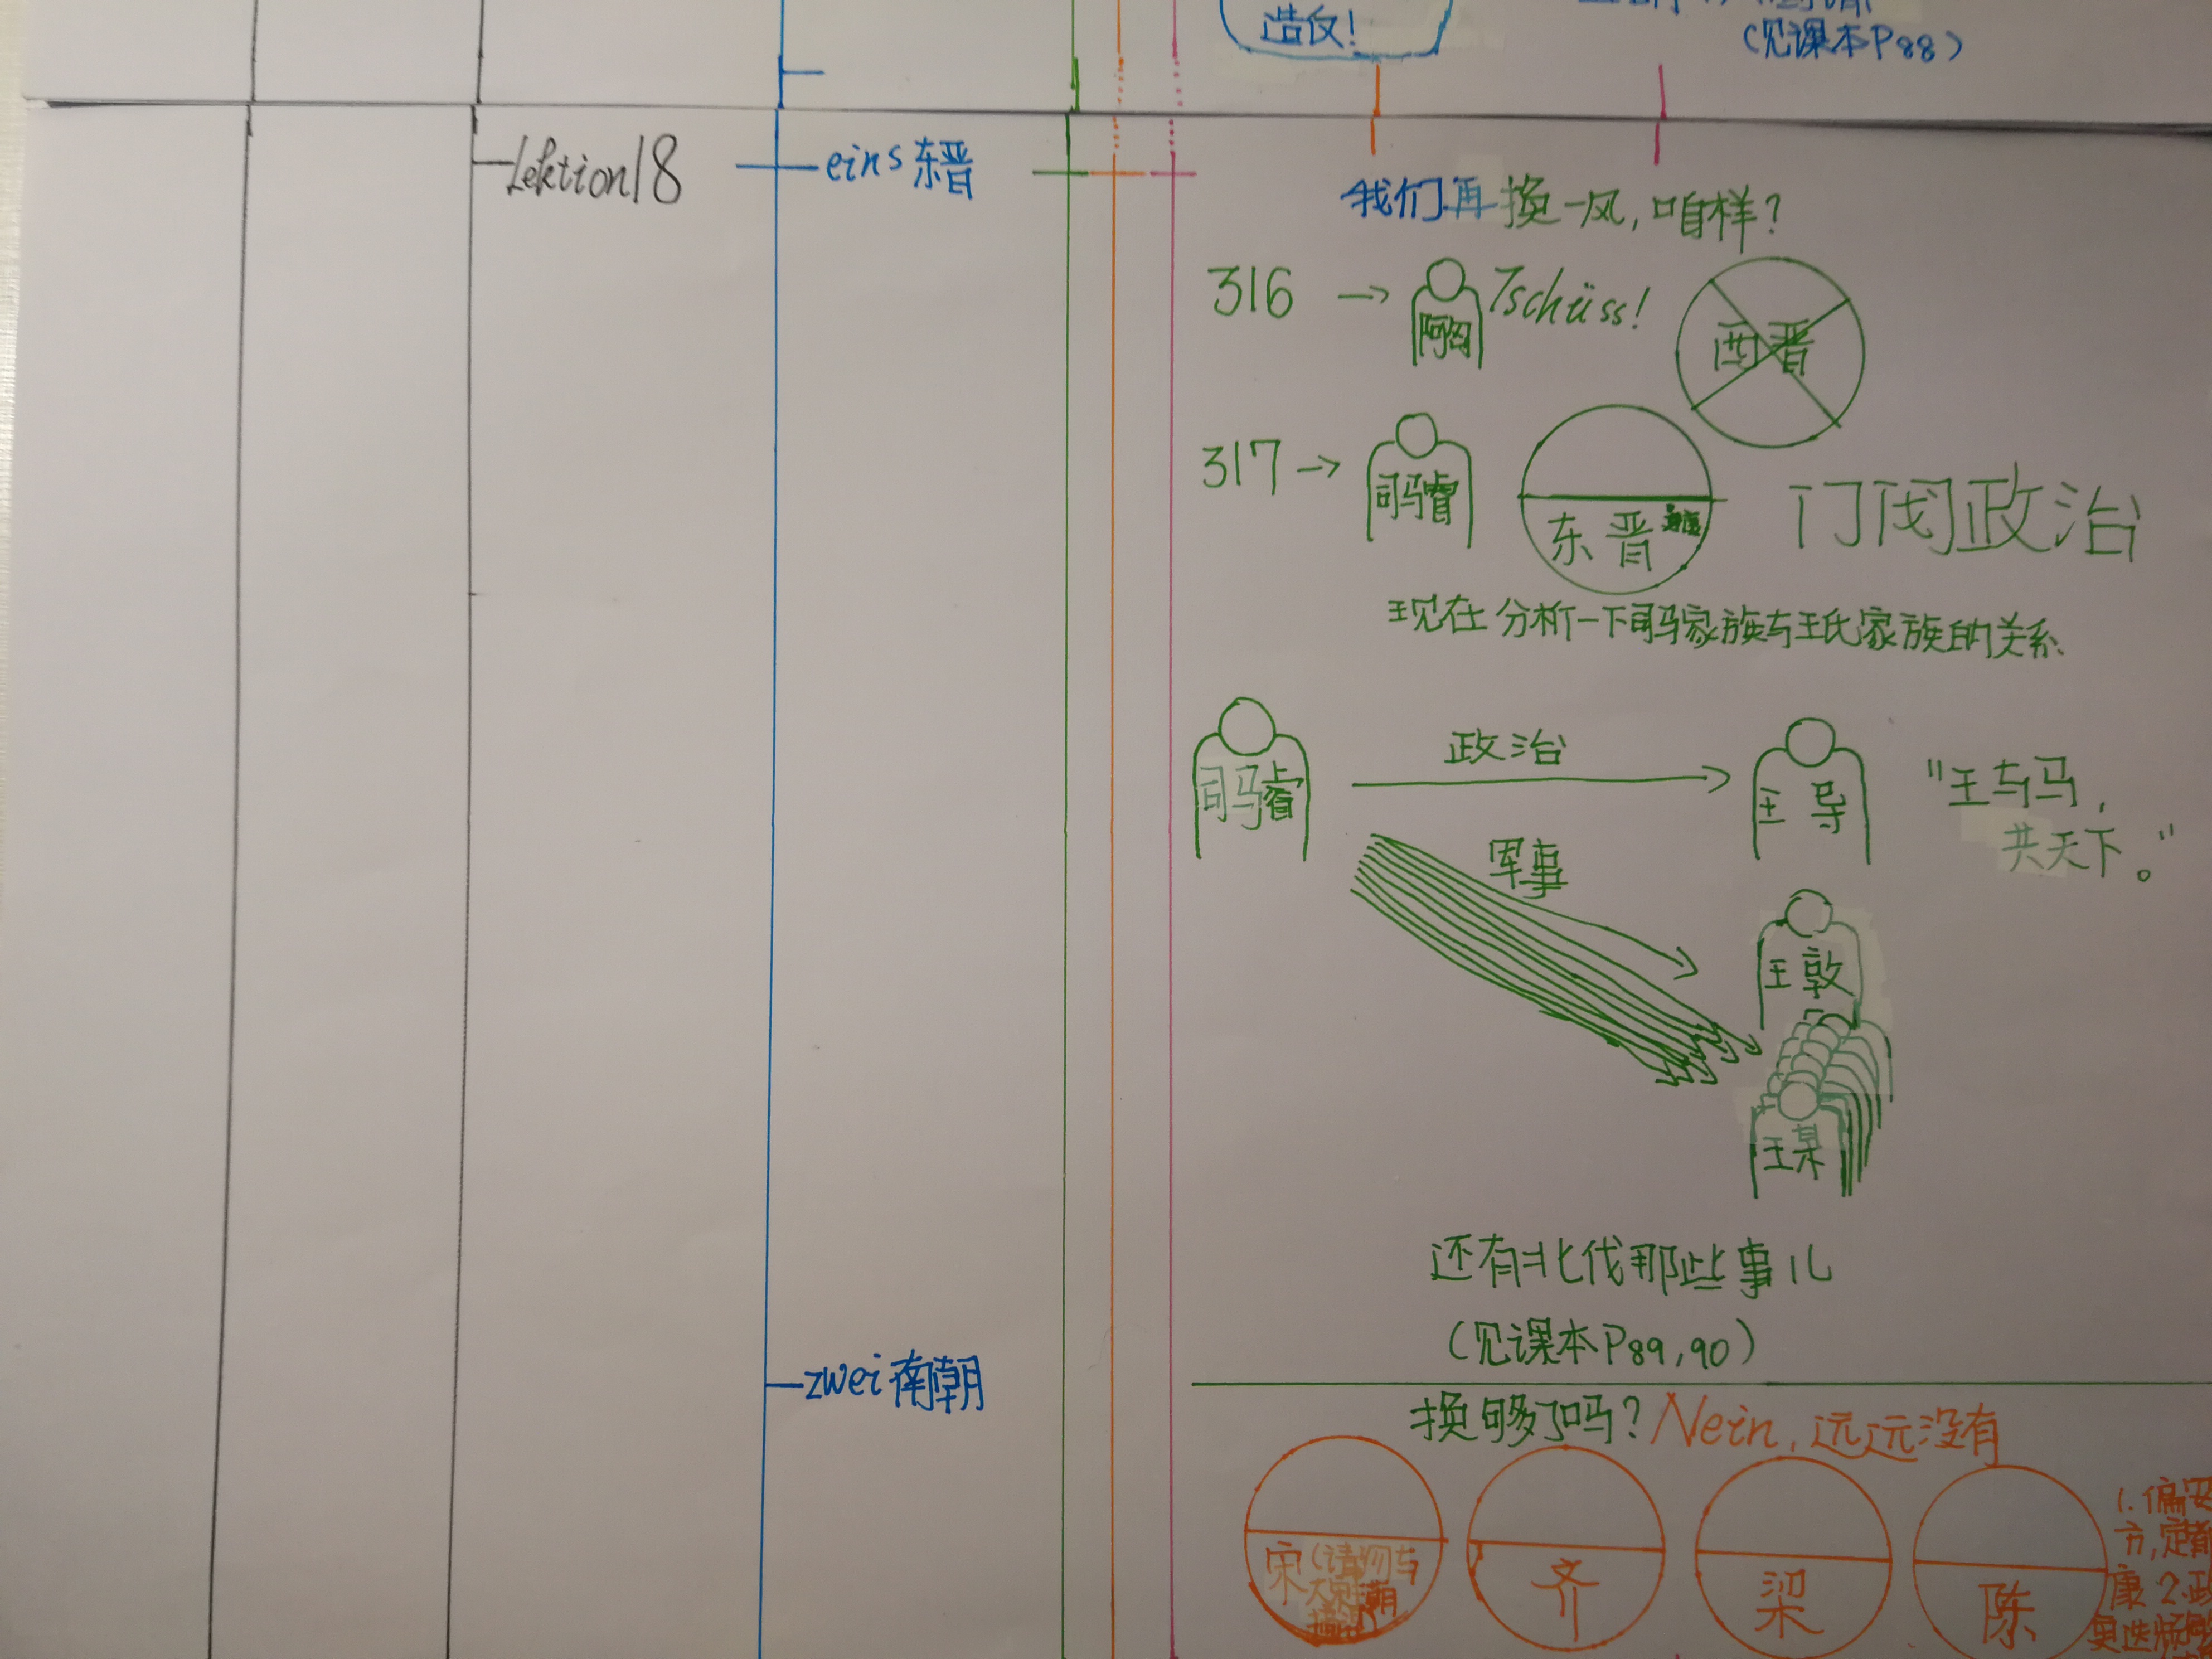 造反！
(见课本P88)
Lektion18
eins东晋
我们再换一风,咱样?
316 → 阿 Tschüss! 西晋
317 → 司马睿 东晋 门阀政治
现在分析一下司马家族与王氏家族的关系
司马睿 政治 王导 "王与马,
共天下。"
军事
王敦
王某
还有北伐那些事儿
(见课本P89,90)
zwei南朝
换够了吗? Nein,远远没有
宋(请勿与
大宋朝
搞混)
齐
梁
陈
1.偏安
方,定都
康2.政
更迭频繁